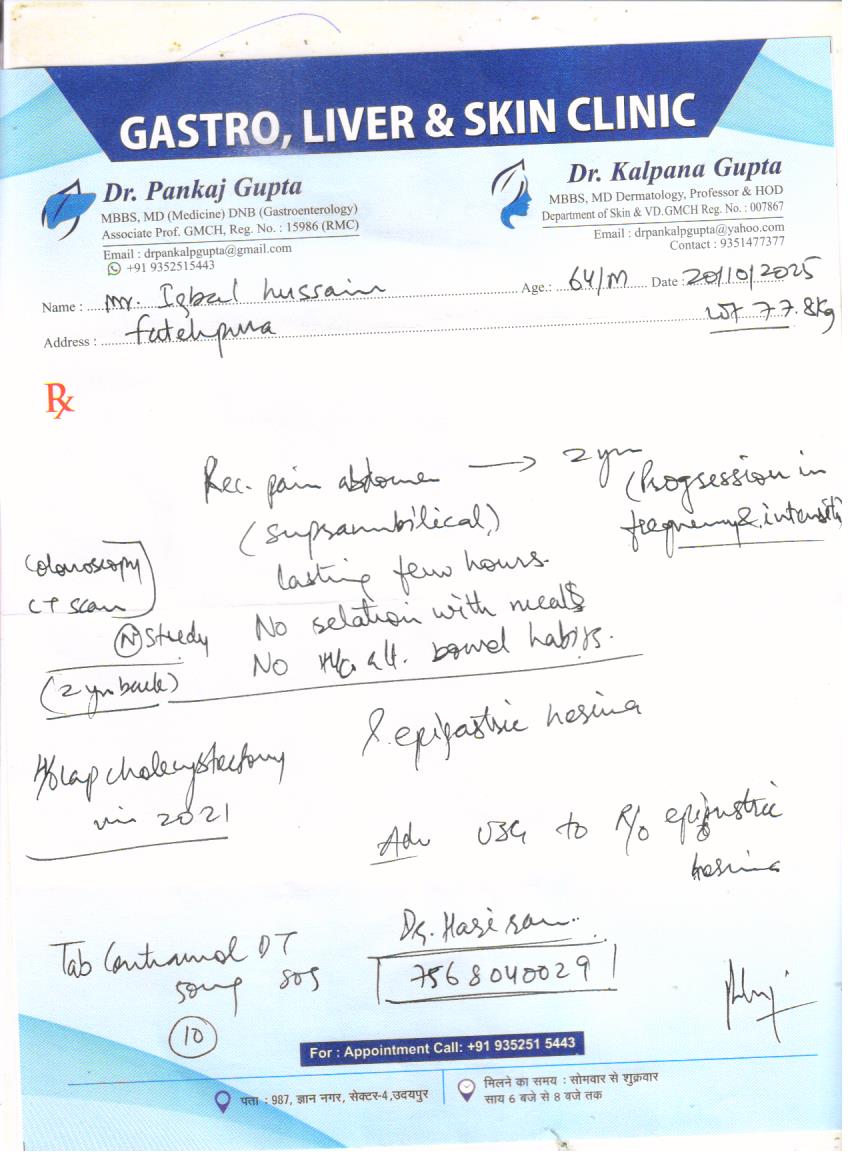 GASTRO, LIVER & SKIN CLINIC
Dr. Pankaj Gupta
MBBS, MD (Medicine) DNB (Gastroenterology)
Associate Prof. GMCH, Reg. No. : 15986 (RMC)
Email : drpankalpgupta@gmail.com
+91 9352515443
Dr. Kalpana Gupta
MBBS, MD Dermatology, Professor & HOD
Department of Skin & VD.GMCH Reg. No. : 007867
Email : drpankalpgupta@yahoo.com
Contact : 9351477377
Name : Mr. Iqbal hussain Age.: 64/M Date : 20/10/2025
Address : fatehpura wt 77.8kg
Rx
Rec. pain abdomen → 2 yrs
(Progression in
frequency & intensity
(supraumbilical)
lasting few hours.
No relation with meals
No H/o alt. bowel habits.
Colonoscopy
CT scan
(N) Study
(2 yrs back)
H/o lap cholecystectomy
in 2021
?. epigastric hernia
Adv USG to R/o epigastric
hernia
Tab Contramol DT
50mg SOS
(10)
Dr.
7568040029
For : Appointment Call: +91 935251 5443
पता : 987, ज्ञान नगर, सेक्टर-4,उदयपुर
मिलने का समय : सोमवार से शुक्रवार
साय 6 बजे से 8 बजे तक